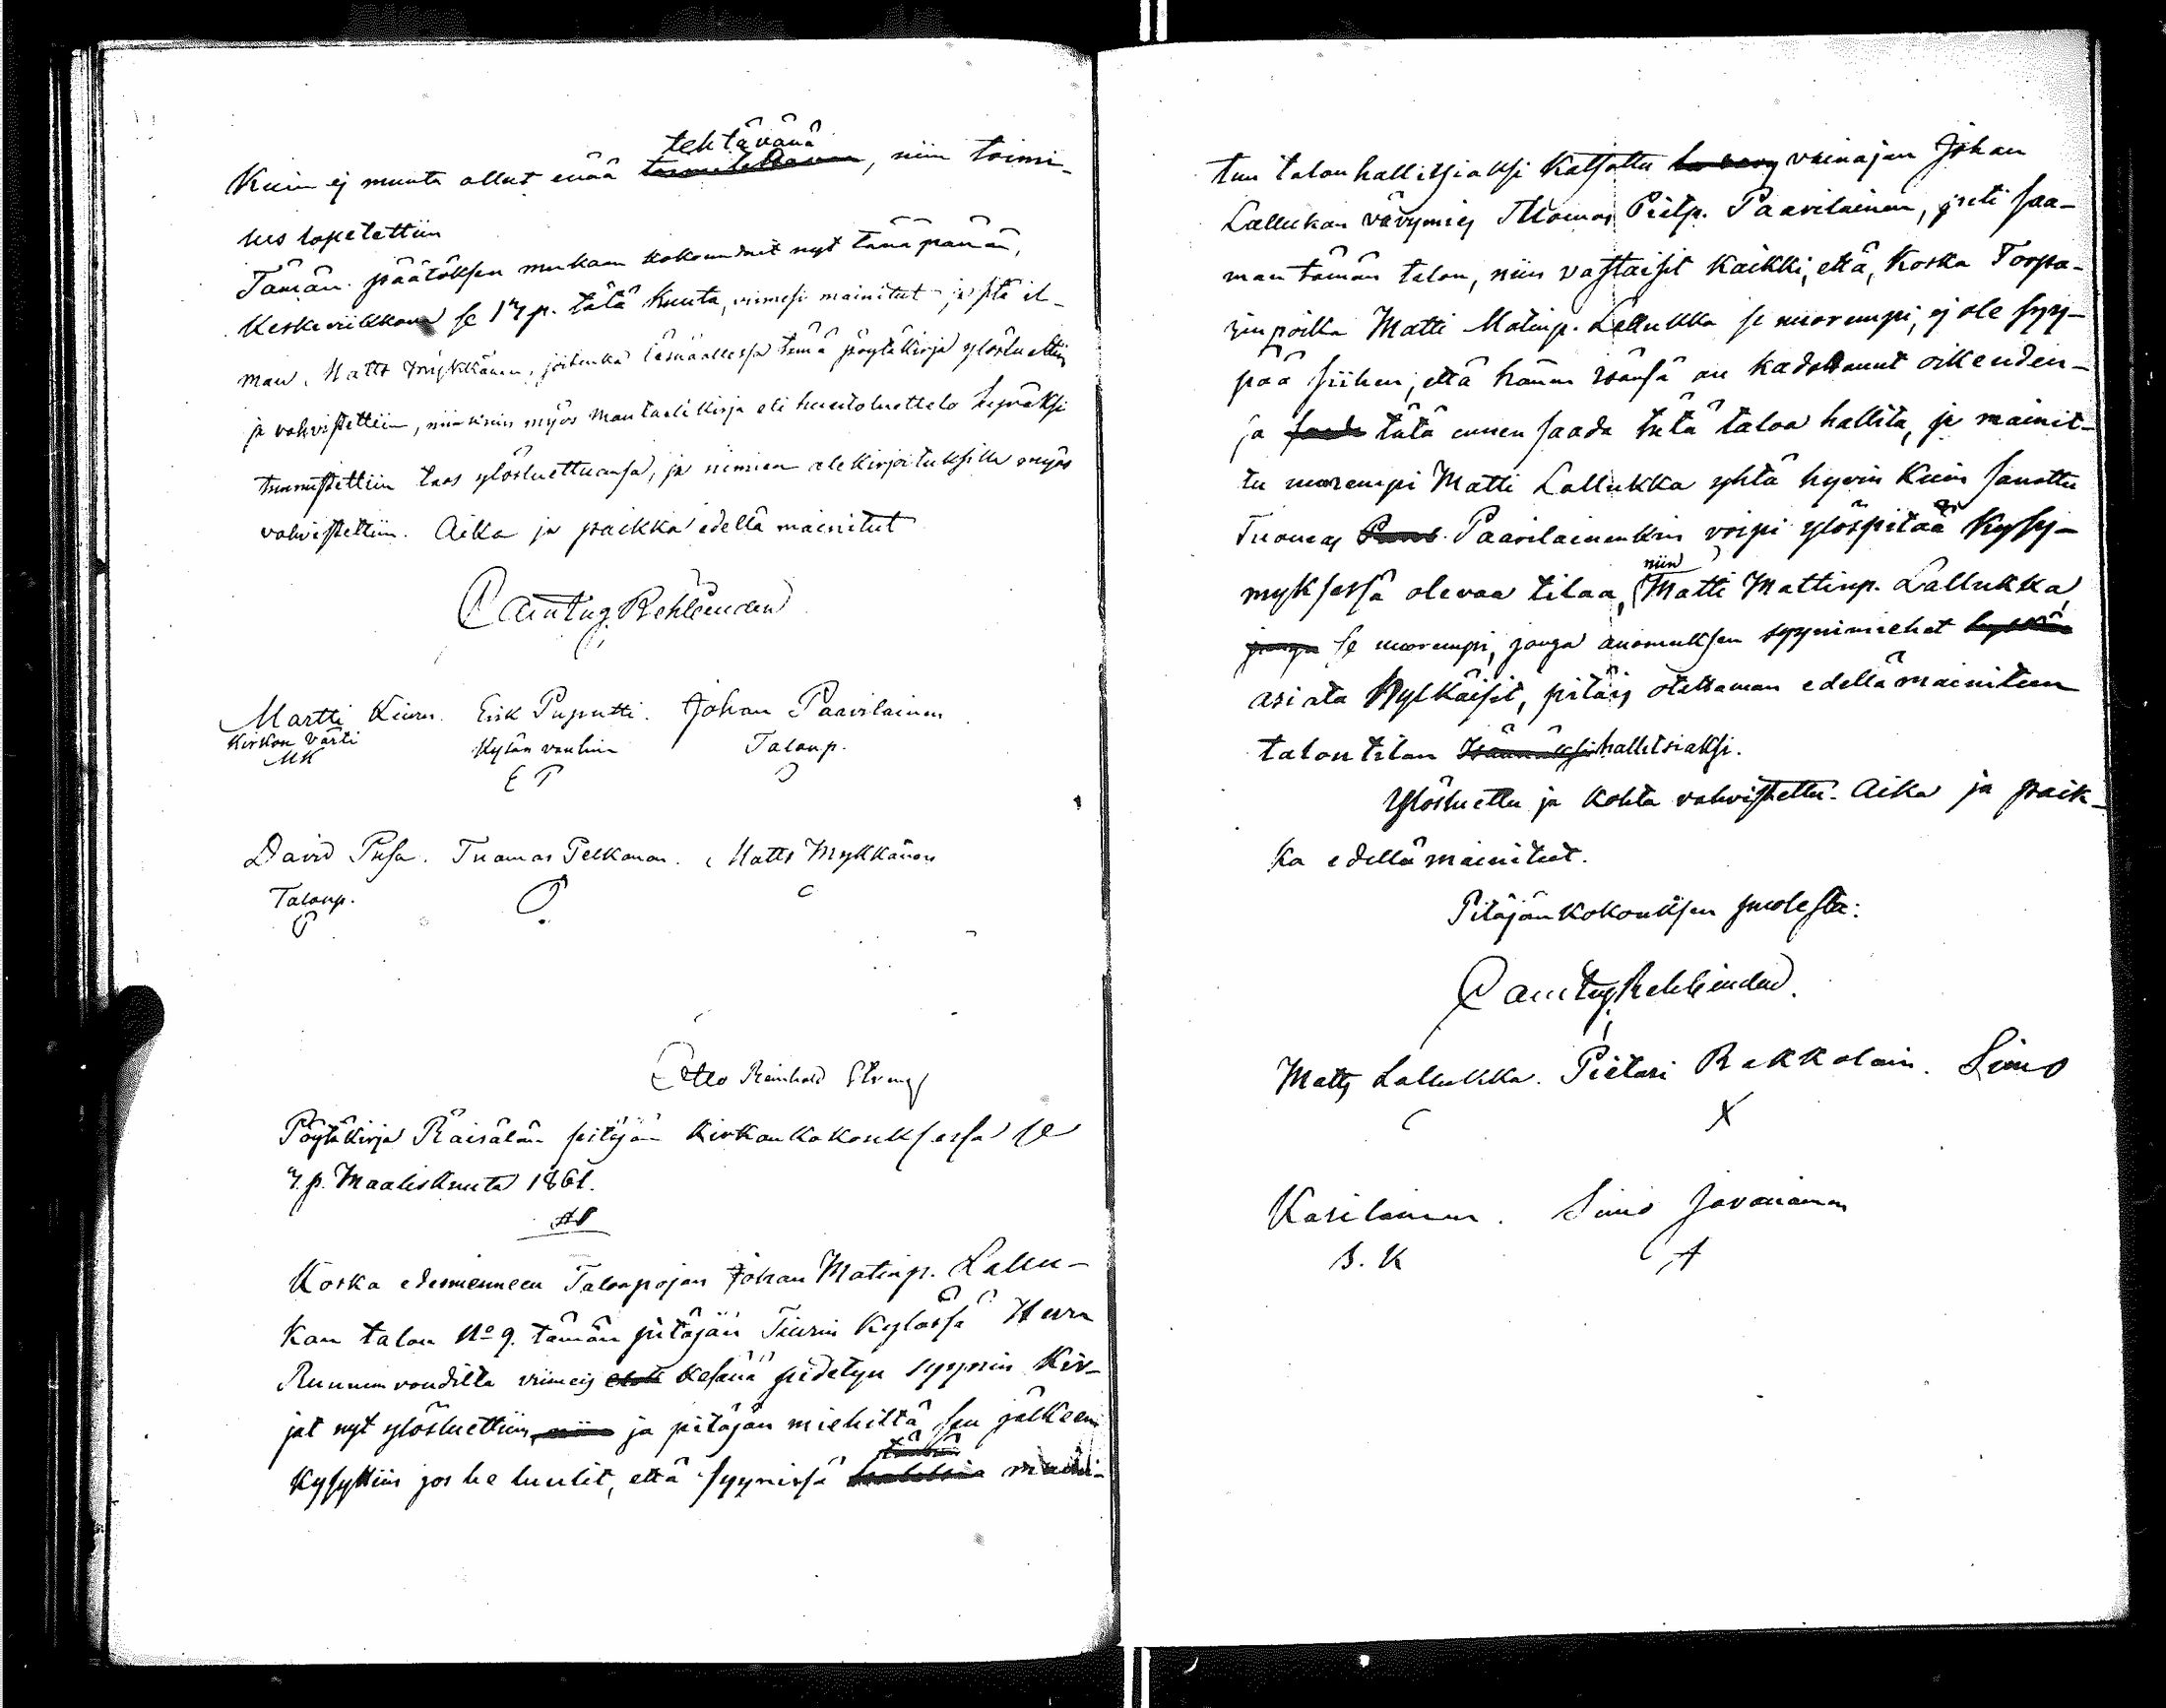 tehtävänä
Kuin ej muuta ollut enää, niin toimi-
tus lopetettiin
Tämän päätöksen mukaan kokoundnit nyt tänäpänän,
Keskiviikkona se 17 p. tätä kuuta, viimesi mainitut ja sitä il-
man Matts Mykkänen, joitenka läsnäollessa tämä pöytäkirja ylösluettiin
ja vahvistettiin, niinkuin myös mantaalikirja eli huutoluettelo hyväksi
tunnustettiin taas ylösluettuansa, ja nimien alekirjoituksilla myös
vahvistettiin. Aika ja paikka edellä mainitut
Martti Kiuru. Erik Puputti. Johan Paavilainen
Kirkon värti Kylän vanhin Talonp.
MK EP
David Pusa. Tuomas Pelkonen. Matts Mykkänen
Talonp.
Otto Reinhold
Pöytäkirja Räisälän pitäjän kirkonkokouksessa se
7. p. Maaliskuuta 1861.
Koska edesmenneen Talonpojan Johan Matinp. Lallu-
kan talon No 9. tämän pitäjän Tiurin kylässä Herra
Ruununvoudilta viimeis kesänä pidetyn syynin kir-
jat nyt ylösluettiin, ja pitäjän miehiltä sen jälkeen
kysyttiin jos he luulit, että syynissä maini-
tun talon hallitsiaksi katsottu vainajan Johan
Lallukan vävymies Thomas Pietp. Paavilainen, piti saa-
man tämän talon, niin vastaisit kaikki, että, koska Torpa-
rin poika Matti Matinp. Lallukka se nuorempi, ej ole syy-
pää siihen, että hänen isänsä on kadottanut oikeuden-
ja saada tätä ennen saada tätä taloa hallita, ja mainit-
tu nuorempi Matti Lallukka yhtä hyvin kuin sanottu
Tuomas Paavilainenkin voipi ylöspitää kysy-
niin
myksessä olevaa tilaa, Matti Mattinp. Lallukka
se nuorempi, jonga anomuksen syynimiehet
asiata hylkäisit, pitäis otettaman edellämainitun
talon tilan hallitsiaksi.
Ylösluettu ja kohta vahvistettu. Aika ja paik-
ka edellämainitut.
Pitäjänkokouksen puolesta:
Matts Lallukka. Pietari Rakkolain. Simo
X
Kasilainen. Simo Javanainen
S. K